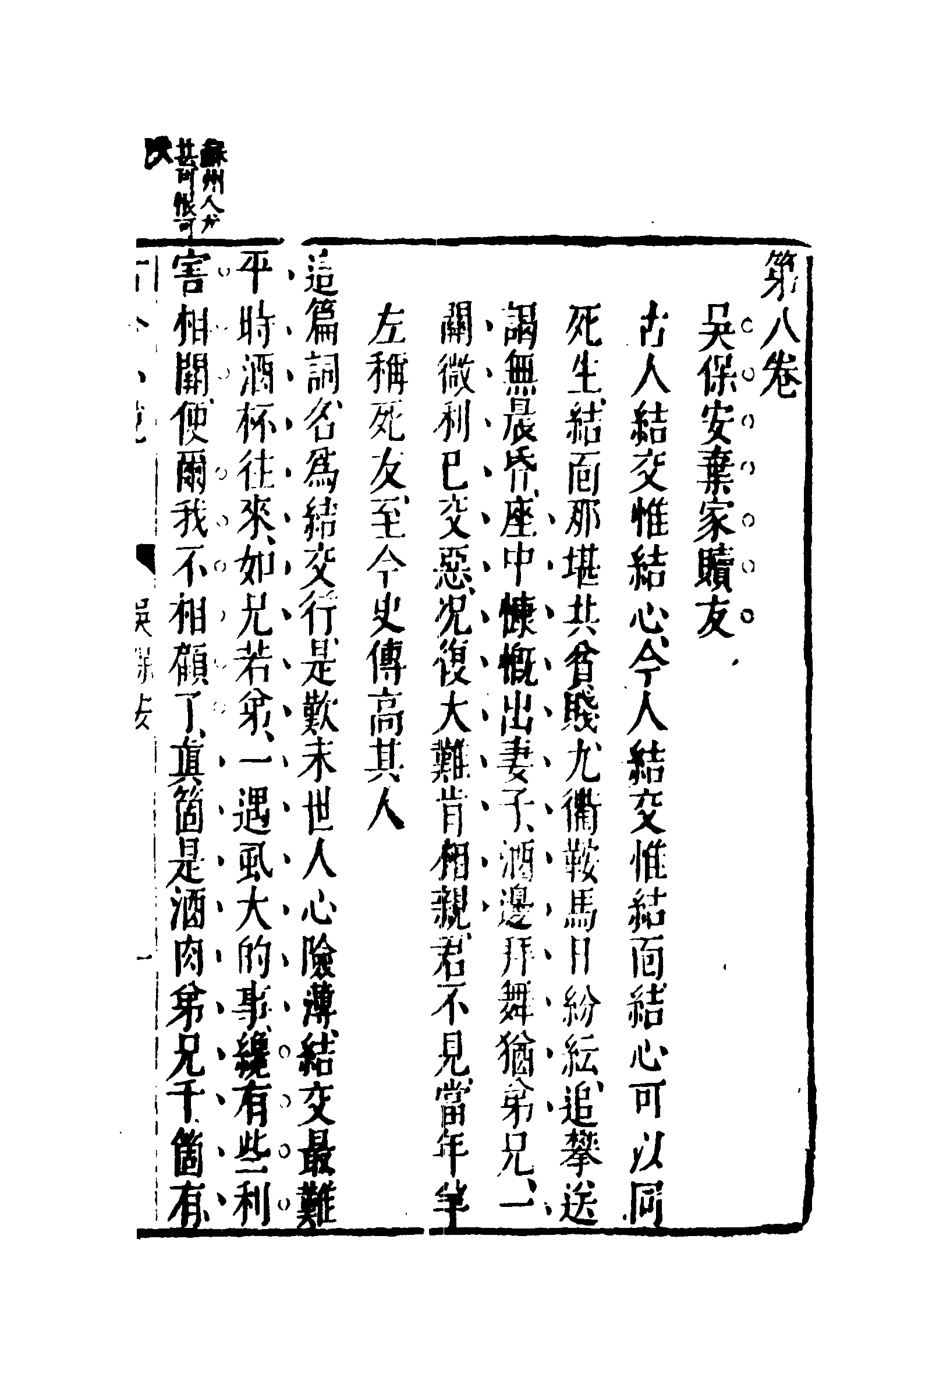 第八卷
吳保安棄家贖友
古人結交惟結心、今人結交惟結面、結心可以同
死生、結面那堪共貧賤、九衢鞍馬日紛紜、追攀送
謁無晨昏、座中慷慨出妻子、酒邊拜舞猶弟兄、一
關微利已交惡、况復大難肯相親、君不見當年羊
左稱死友、至今史傳高其人
這篇詞名爲結交行、是歎末世人心險薄、結交最難
平時酒杯往來、如兄若弟、一遇虱大的事、纔有些利
害相關、便爾我不相顧了、眞箇是酒肉弟兄千箇有、
吳保安
一
蘇州人